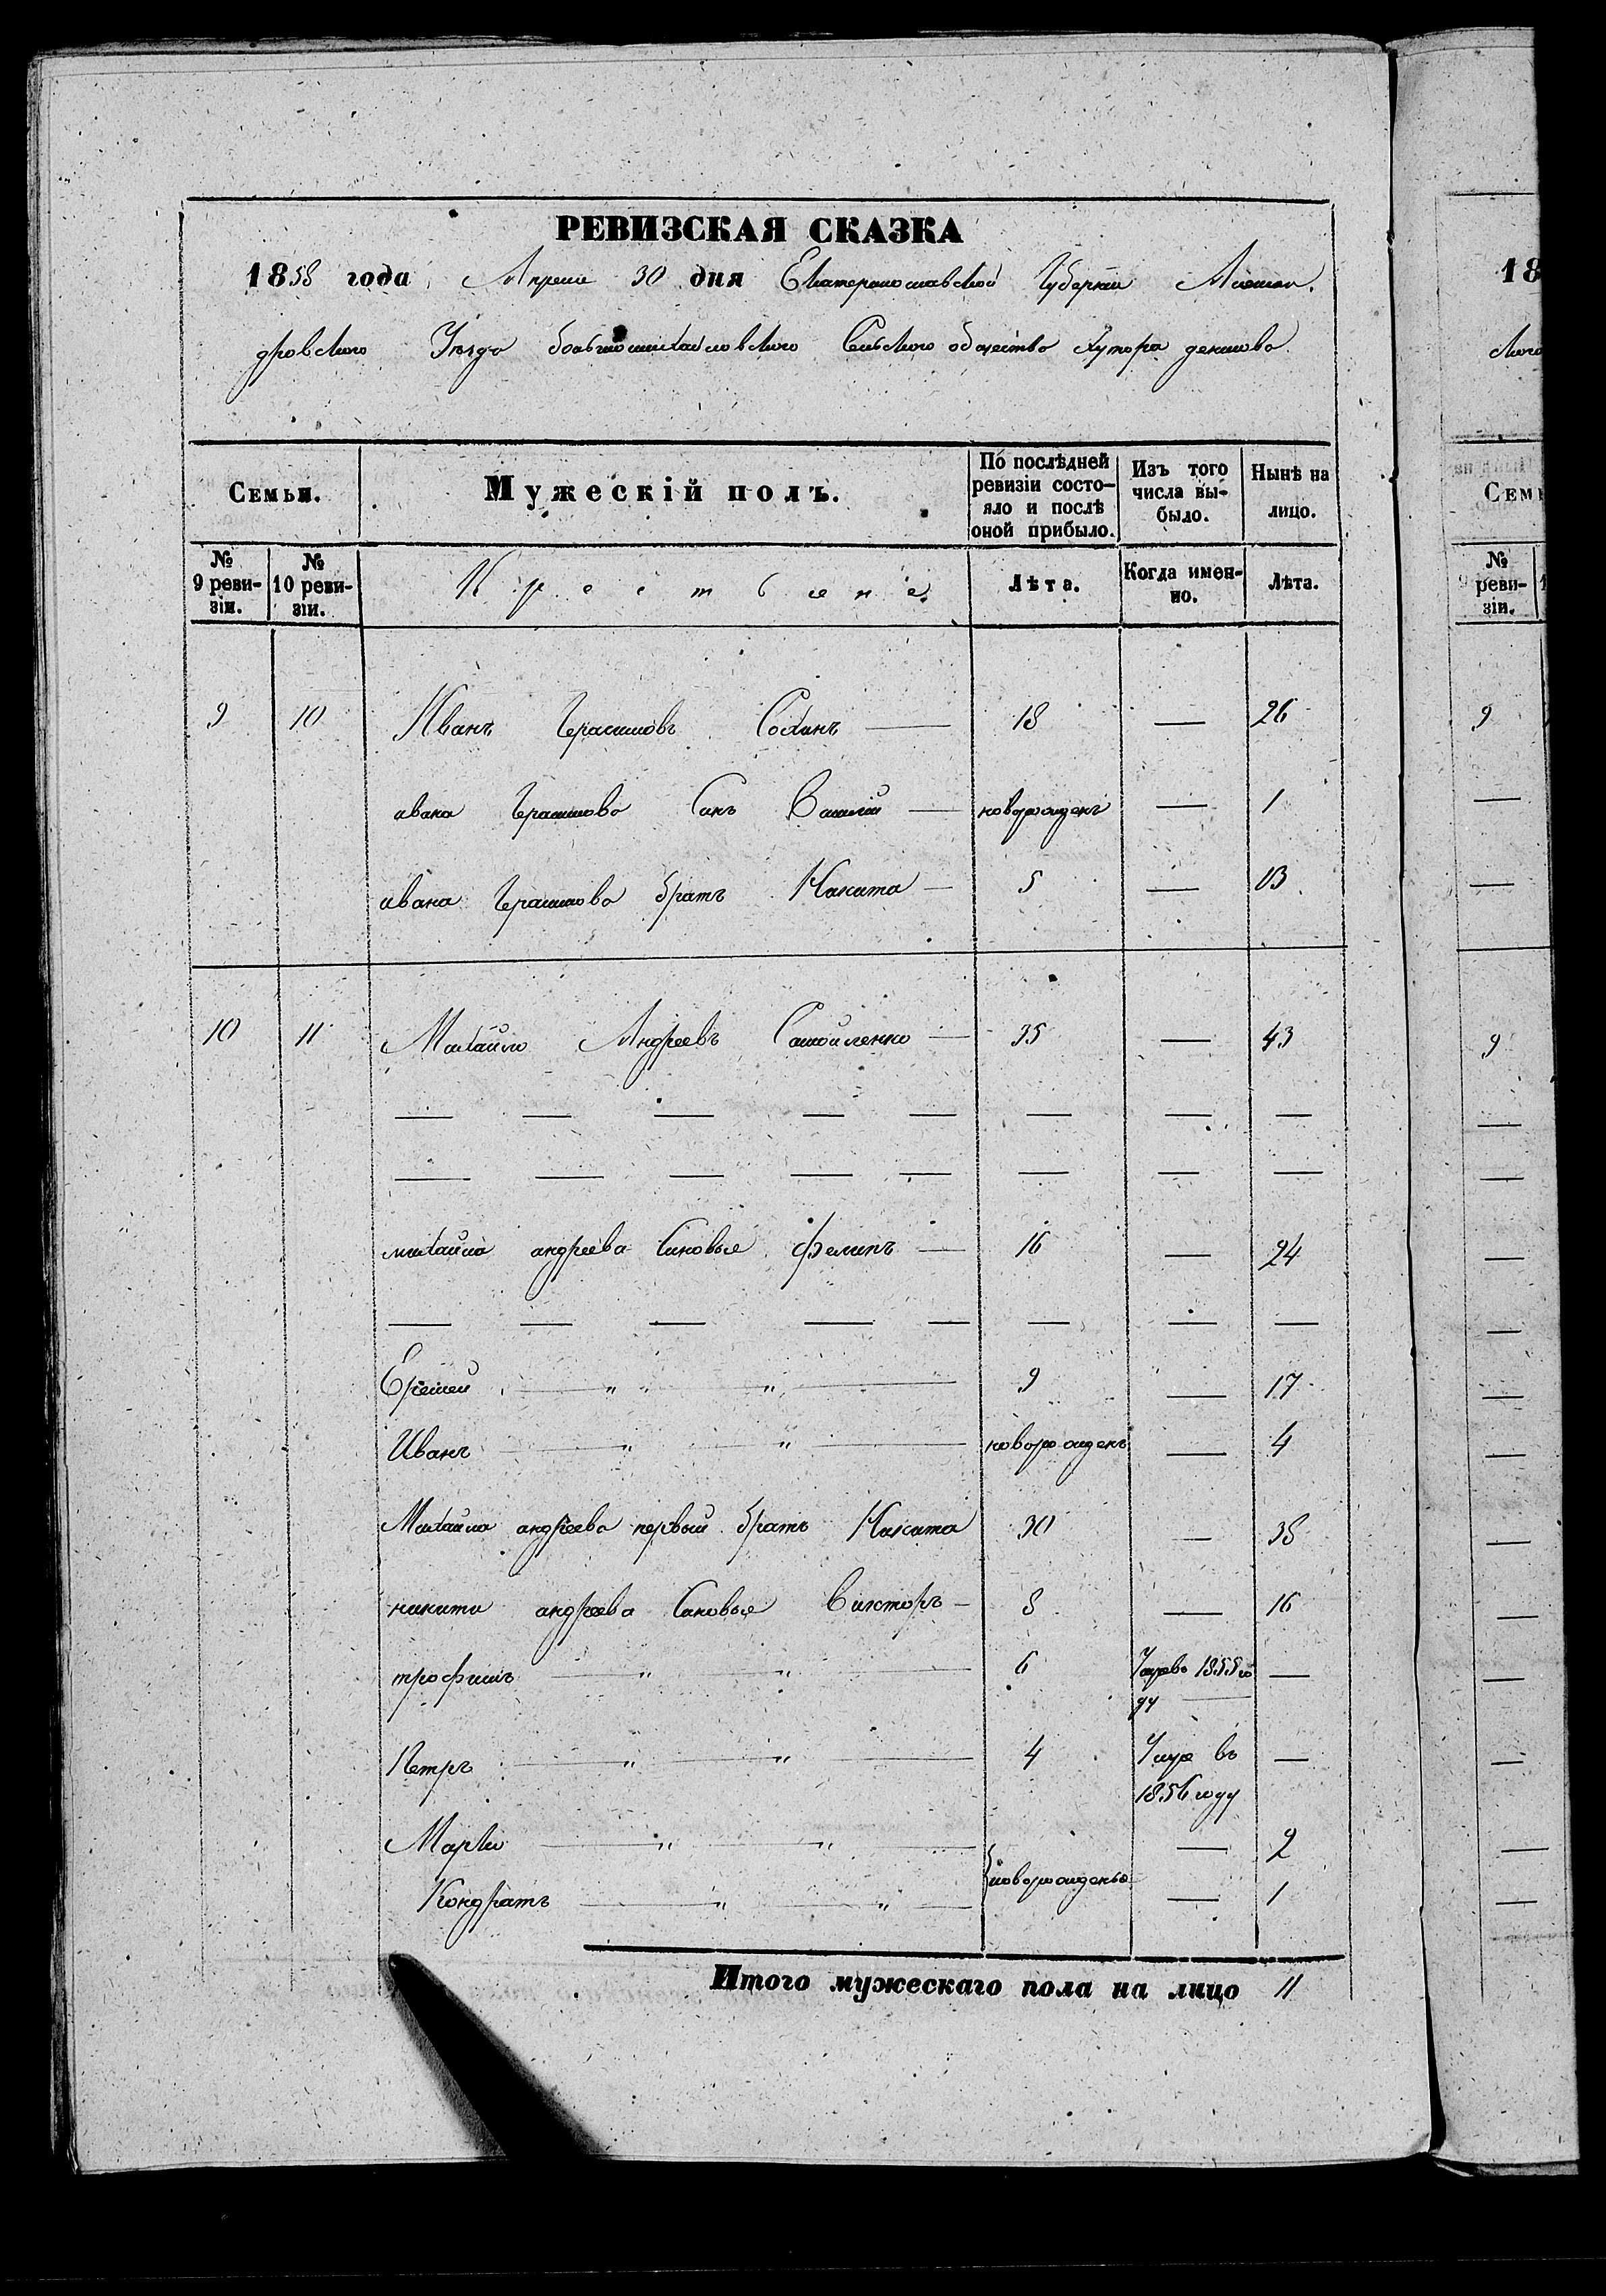 РЕВИЗСКАЯ СКАЗКА
1858 года Апреля 30 дня Екатеринославской Губернии Алексан.
дровского Уезда большемихайловского Сельского общество хутора
Семьи. Мужескій полъ. По послѣдней ревизіи состо-яло и послѣ оной прибыло. Изъ того числа вы-было. Нынѣ на лицо.
№ 9 реви-зіи. № 10 реви-зіи. Крестьяне Лѣта. Когда имен-но. Лѣта.
9 10 Иванъ Герасимовъ 18 — 26
ивана Герасимова Синъ Василій — новорожденъ — 1
ивана Герасимова братъ Никита — 5 — 13
10 11 Михайло Андреевъ Самойленко — 35 — 43
— — — — — — — —
— — — — — — — —
михайла андреева Синовье Фелипъ — 16 — 24
— — — — — — — —
Еремей — " " — " — 9 — 17
Иванъ — " — " — новорожденъ — 4
Михайла андреева первый братъ Никита 30 — 38
никити андреева Синовье Викторъ — 8 — 16
трофимъ — " — " — 6 Умре въ 1855 го —
ду —
Петръ — " — " — 4 Умре въ —
1856 году
Марко — " — " — — 2
новорожденые
Кондратъ — " — " — — 1
Итого мужескаго пола на лицо 11
18
ского
Семь
№ 9 реви-зіи. 1
9
9